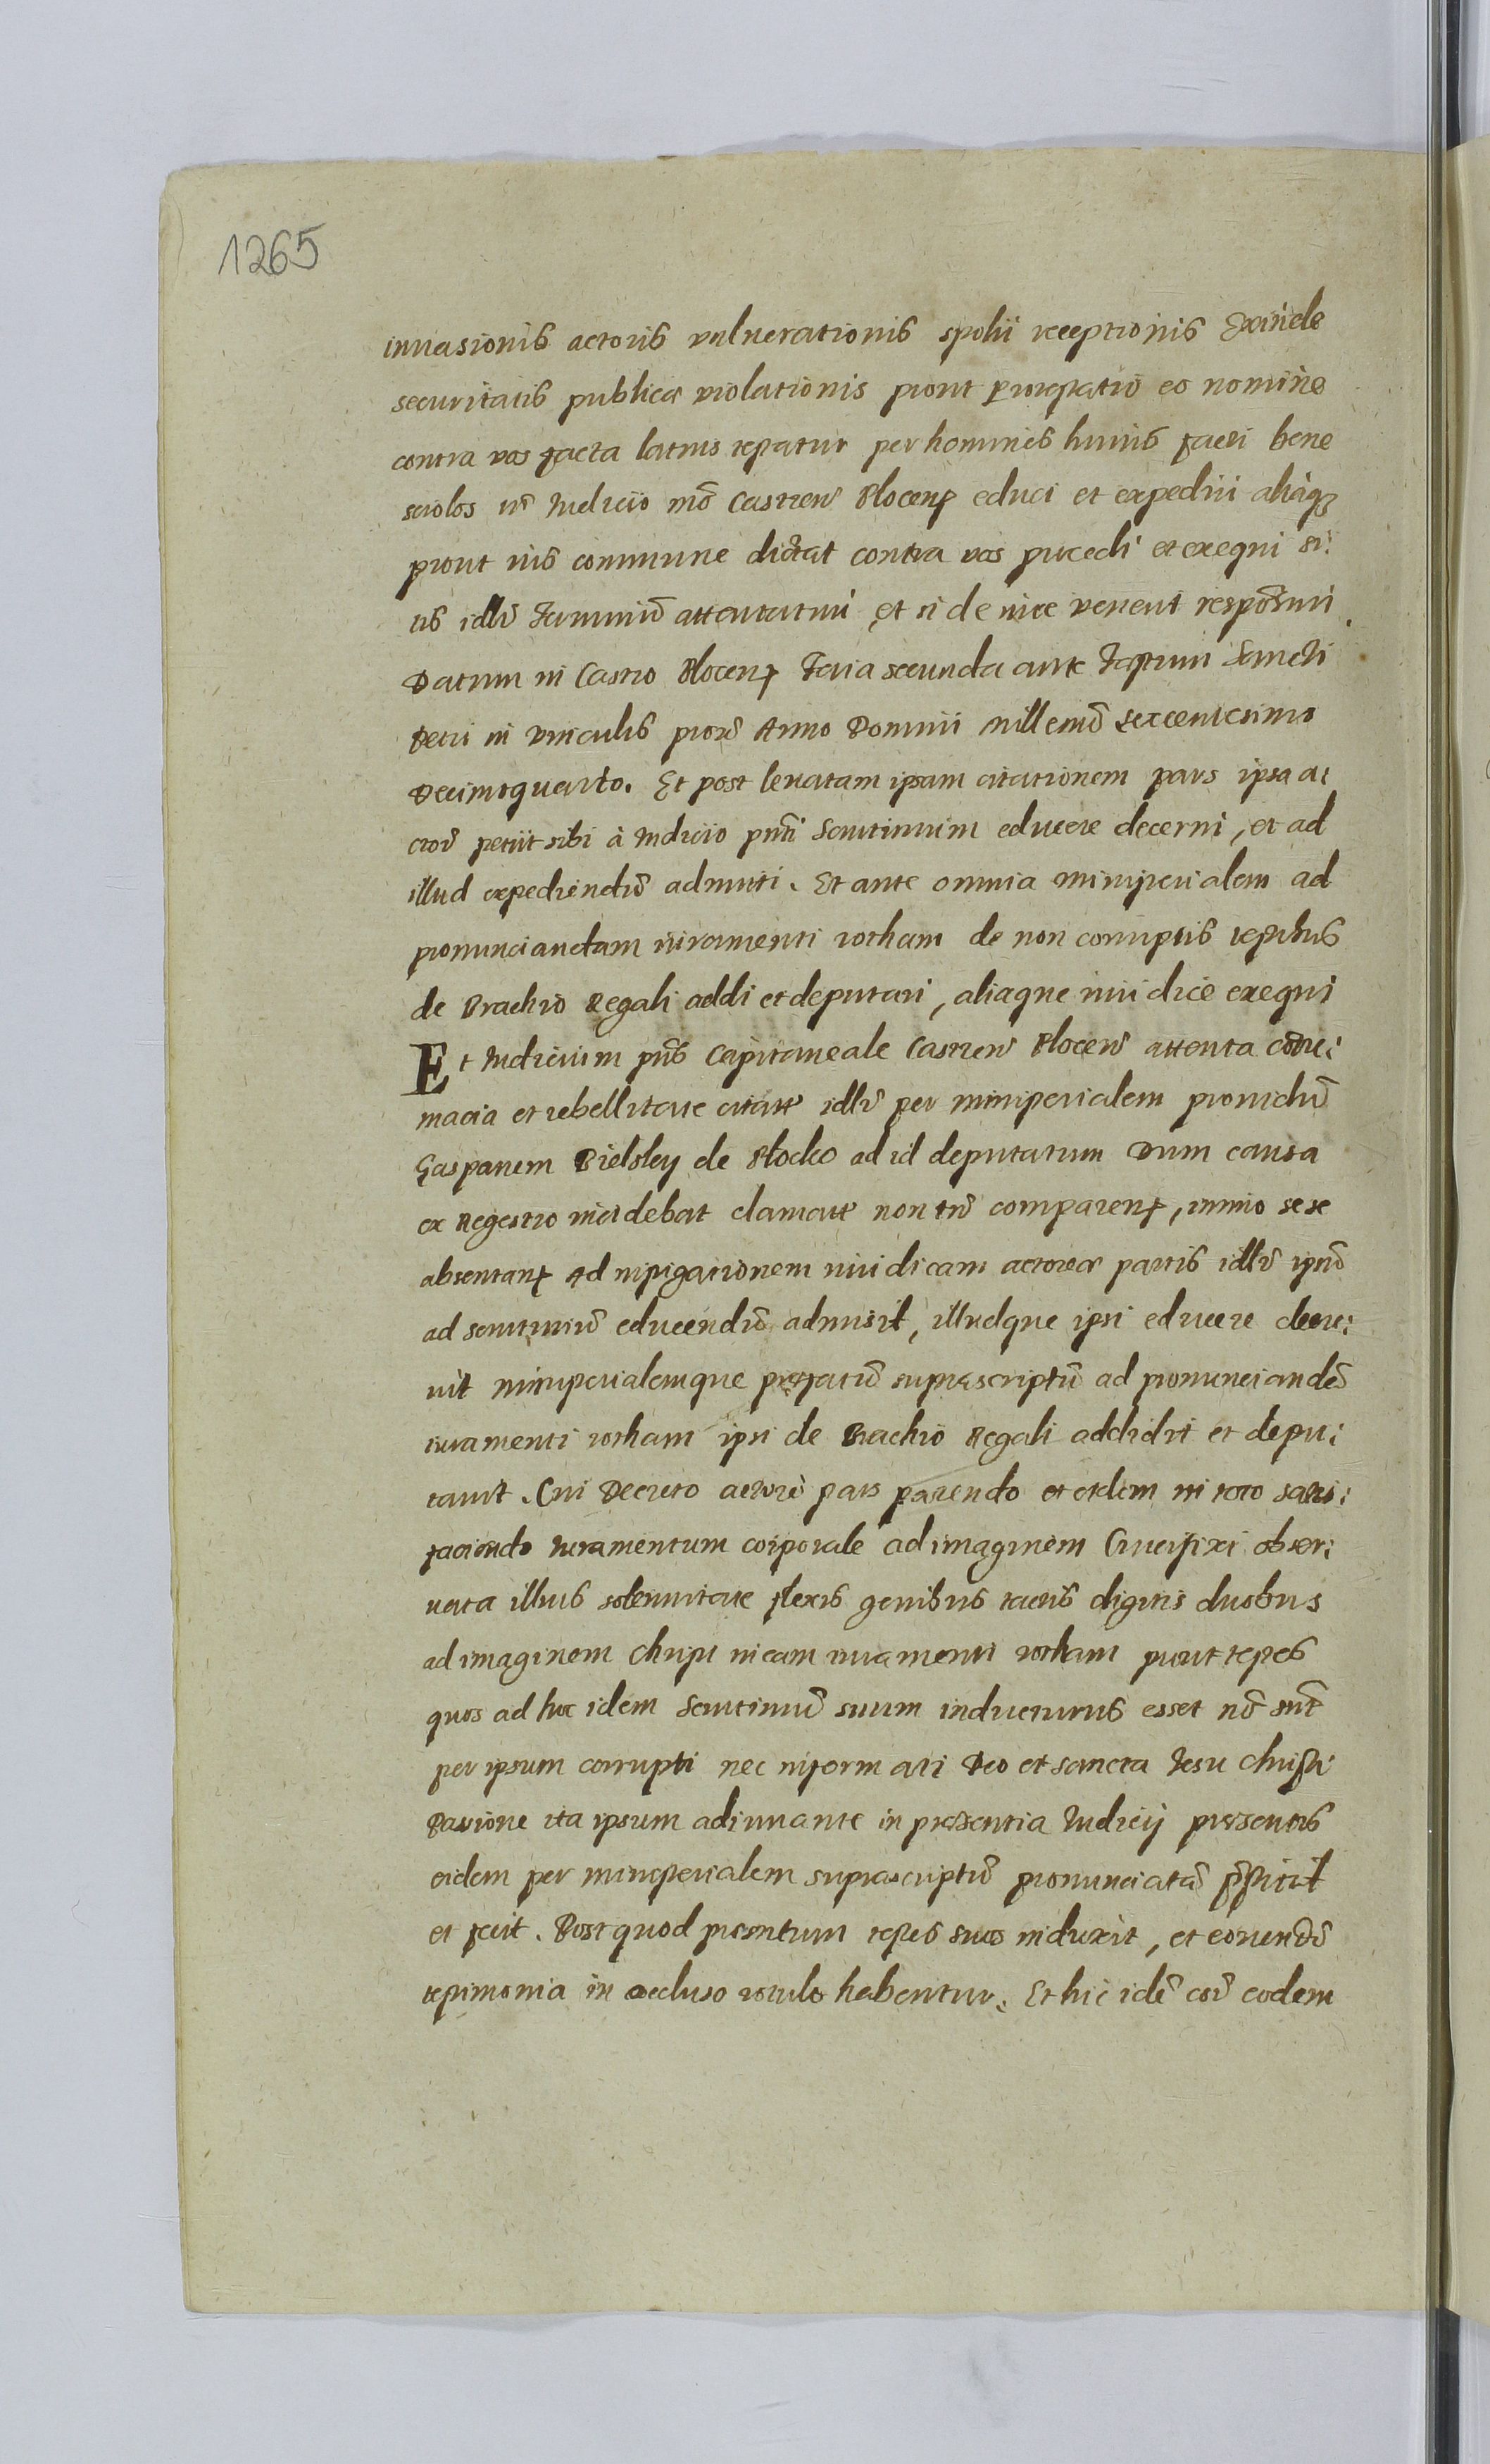 1265
inuasionis actoris vulnerationis spolii receptionis Exinde
securitatis publicæ violationis prout protestatio eo nomine
contra vos facta latius testatur per homines huius facti bene
sciolos in Iudicio mõ Castren̄ Plocen̄ educi et expediri aliaq3
prout ius commune dictat contra vos procedi et exequi si:
tis idẽ Terminũ attentaturi et si de iure venerit responsuri.
Datum in Castro Plocen̄ Feria secunda ante Festum Sancti
Petri in vinculis proxĩ Anno Domini Millesimõ sexcentesimo
Decimoquarto. Et post leuatam ipsam citationem pars ipsa a:
ctorĩ petiit sibi à Iudicio pñti Scrutinium educere decerni, et ad
illud expediendũ admitti. Et ante omnia ministerialem ad
pronunciandam iuramenti rotham de non corruptis testibus
de Brachio Regali addi et deputari, aliaque iuridicè exequi
Et Iudicium pñs Capitaneale Castren̄ Plocen̄ attenta contu:
macia et rebellitate citatĩ per ministerialem prouidũ
Gasparem Bielsky de Plocko ad id deputatum Dum causa
ex Regestro incidebat clamatĩ non tñ comparen̄, immo sese
absentan̄ ad instigationem iuridicam actoreæ partis ipsũ
ad scrutiniũ educendũ admisit, illudque ipsi educere decre:
uit ministerialemque præfatũ suprascriptũ ad pronunciandã
iuramenti rotham ipsi de Brachio Regali addidit et depu:
tauit. Cui Decreto actorè pars parendo et eidem in toto satis:
faciendo Iuramentum corporale ad imaginem Crucifixi obser:
uata illius solennitate flexis genibus tactis digitis duobus
ad imaginem Christi in eam iuramenti rotham prout testes
quos ad hoc idem Scrutiniũ suum inducturus esset nõ sũt
per ipsum corrupti nec informati Deo et sancta Iesu Christi
Passione ita ipsum adiuuante in præsentia Iudicij præsentis
eidem per ministerialem suprascriptũ pronunciatã p̃stitit
et fecit. Post quod præstitum testes suos induxit, et eorundẽ
testimonia in occluso rotulo habentur. Et hic idẽ corã eodem